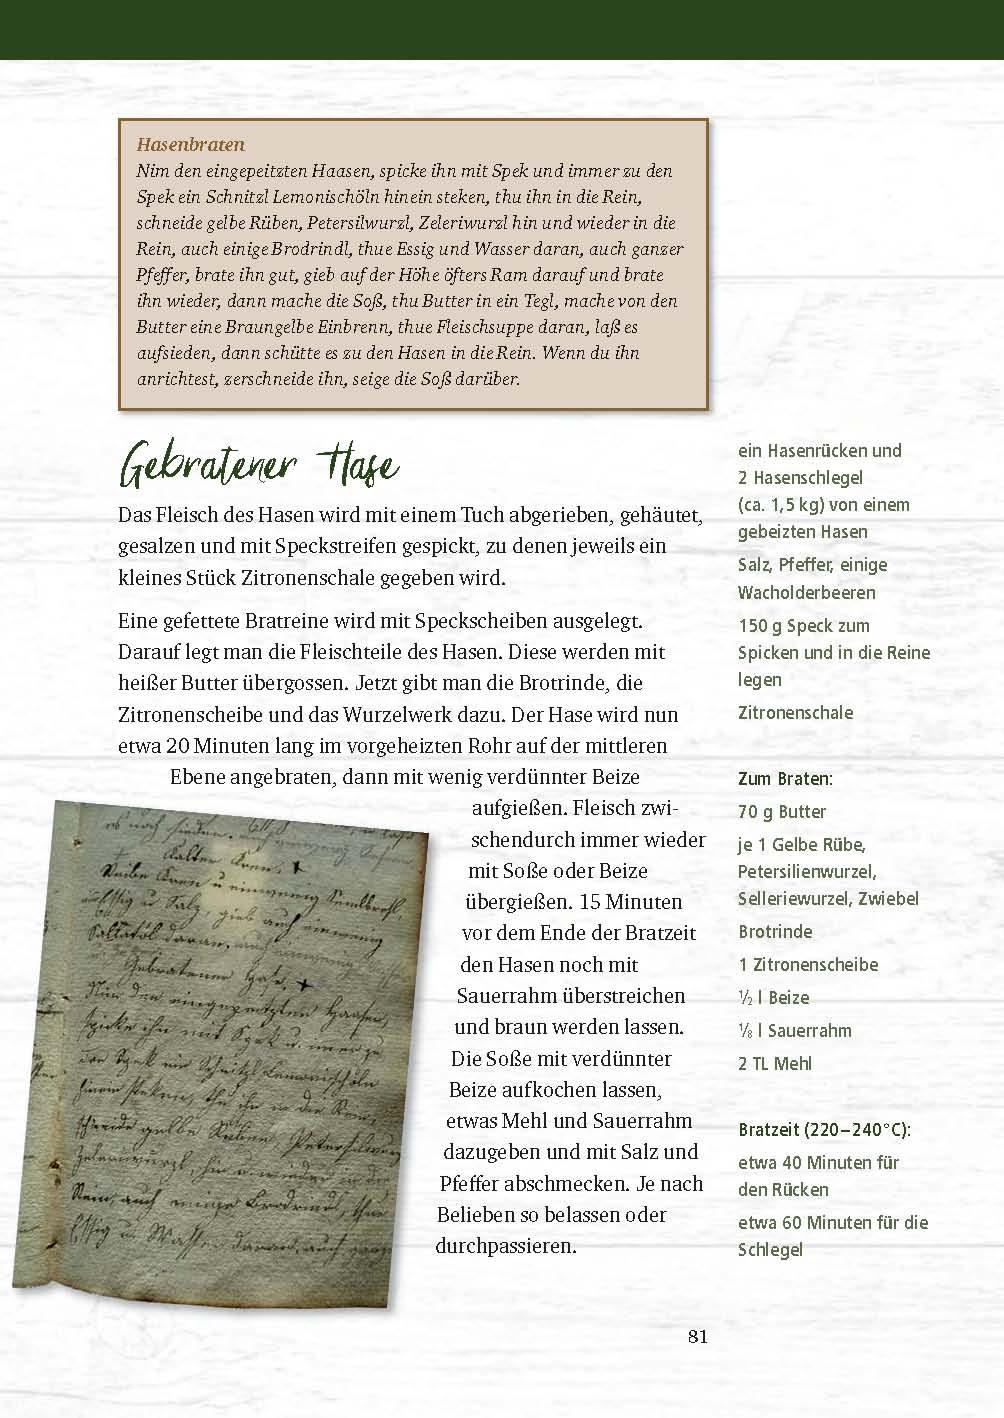 Hasenbraten
Nim den eingepeitzten Haasen, spicke ihn mit Spek und immer zu den
Spek ein Schnitzl Lemonischöln hinein steken, thu ihn in die Rein,
schneide gelbe Rüben, Petersilwurzl, Zeleriwurzl hin und wieder in die
Rein, auch einige Brodrindl, thue Essig und Wasser daran, auch ganzer
Pfeffer, brate ihn gut, gieb auf der Höhe öfters Ram darauf und brate
ihn wieder, dann mache die Soß, thu Butter in ein Tegl, mache von den
Butter eine Braungelbe Einbrenn, thue Fleischsuppe daran, laß es
aufsieden, dann schütte es zu den Hasen in die Rein. Wenn du ihn
anrichtest, zerschneide ihn, seige die Soß darüber.
Gebratener Hase
Das Fleisch des Hasen wird mit einem Tuch abgerieben, gehäutet,
gesalzen und mit Speckstreifen gespickt, zu denen jeweils ein
kleines Stück Zitronenschale gegeben wird.
Eine gefettete Bratreine wird mit Speckscheiben ausgelegt.
Darauf legt man die Fleischteile des Hasen. Diese werden mit
heißer Butter übergossen. Jetzt gibt man die Brotrinde, die
Zitronenscheibe und das Wurzelwerk dazu. Der Hase wird nun
etwa 20 Minuten lang im vorgeheizten Rohr auf der mittleren
Ebene angebraten, dann mit wenig verdünnter Beize
aufgießen. Fleisch zwi-
schendurch immer wieder
mit Soße oder Beize
übergießen. 15 Minuten
vor dem Ende der Bratzeit
den Hasen noch mit
Sauerrahm überstreichen
und braun werden lassen.
Die Soße mit verdünnter
Beize aufkochen lassen,
etwas Mehl und Sauerrahm
dazugeben und mit Salz und
Pfeffer abschmecken. Je nach
Belieben so belassen oder
durchpassieren.
ein Hasenrücken und
2 Hasenschlegel
(ca. 1,5 kg) von einem
gebeizten Hasen
Salz, Pfeffer, einige
Wacholderbeeren
150 g Speck zum
Spicken und in die Reine
legen
Zitronenschale
Zum Braten:
70 g Butter
je 1 Gelbe Rübe,
Petersilienwurzel,
Selleriewurzel, Zwiebel
Brotrinde
1 Zitronenscheibe
½ l Beize
⅛ l Sauerrahm
2 TL Mehl
Bratzeit (220–240°C):
etwa 40 Minuten für
den Rücken
etwa 60 Minuten für die
Schlegel
Kalter Kren. +
Reiben Kren u einwenig Semlbrösl,
Essig u Salz, gieb auch einwenig
Sallatöl daran,
Gebratener Hase. +
Nim den eingepeitzten Haasen,
spicke ihn mit Spek u. immer zu
den Spek ein Schnitzl Lemonischöln
hinein steken, thu ihn in die Rein,
schneide gelbe Rüben, Petersilwurzl
Zeleriwurzl, hin u wieder in die
Rein, auch einige Brodrindl, thue
Essig u. Wasser daran, auch ganzer
81